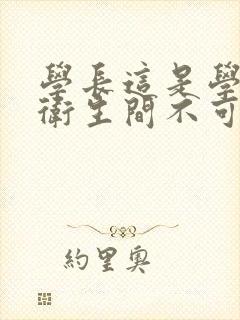 學長這是學
衛生間不可
約里奧